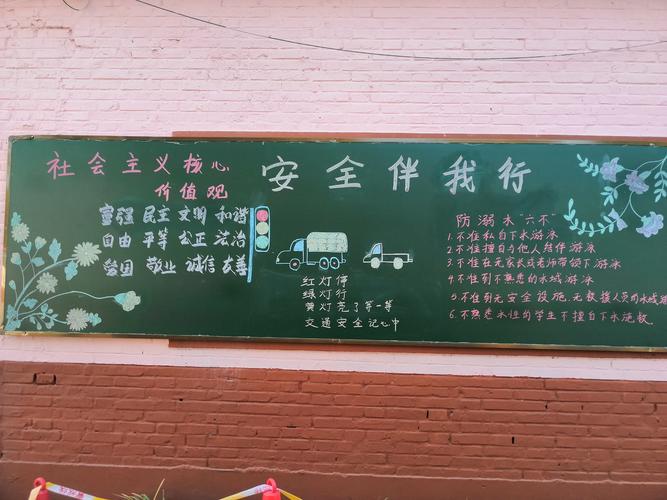 社会主义核心
价值观
富强 民主 文明 和谐
自由 平等 公正 法治
爱国 敬业 诚信 友善
安全伴我行
红灯停
绿灯行
黄灯亮了等一等
交通安全记心中
防溺水"六不"
1.不准私自下水游泳
2.不准擅自与他人结伴游泳
3.不准在无家长或老师带领下游泳
4.不准到不熟悉的水域游泳
5.不准到无安全设施、无救援人员的水域游
6.不熟悉水性的学生不擅自下水施救.